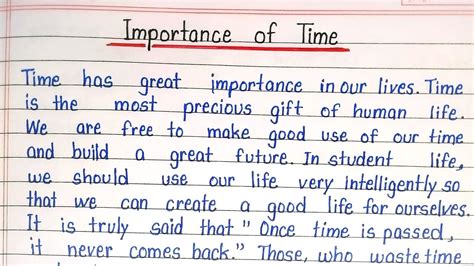 Importance of Time
Time has great importance in our lives. Time
is the most precious gift of human life.
We are free to make good use of our time
and build a great future. In student life,
we should use our life very intelligently so
that we can create a good life for ourselves.
It is truly said that "Once time is passed,
it never comes back." Those, who waste time